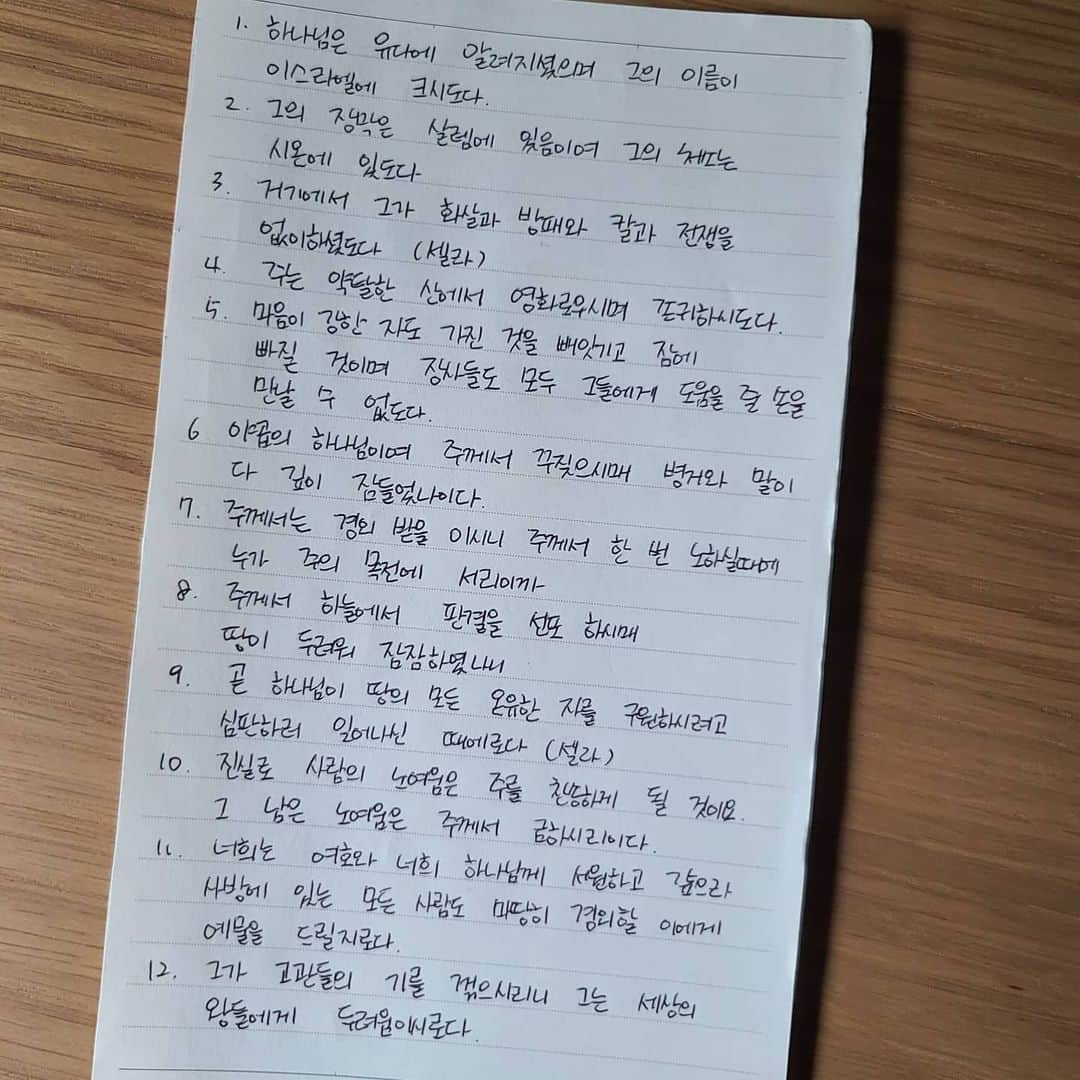 1. 하나님은 유다에 알려지셨으며 그의 이름이
이스라엘에 크시도다.
2. 그의 장막은 살렘에 있음이여 그의 처소는
시온에 있도다
3. 거기에서 그가 화살과 방패와 칼과 전쟁을
없이하셨도다 (셀라)
4. 주는 약탈한 산에서 영화로우시며 존귀하시도다.
5. 마음이 강한 자도 가진 것을 빼앗기고 잠에
빠질 것이며 장사들도 모두 그들에게 도움을 줄 손을
만날 수 없도다.
6 야곱의 하나님이여 주께서 꾸짖으시매 병거와 말이
다 깊이 잠들었나이다.
7. 주께서는 경외 받을 이시니 주께서 한 번 노하실때에
누가 주의 목전에 서리이까
8. 주께서 하늘에서 판결을 선포 하시매
땅이 두려워 잠잠하였나니
9. 곧 하나님이 땅의 모든 온유한 자를 구원하시려고
심판하러 일어나신 때에로다 (셀라)
10. 진실로 사람의 노여움은 주를 찬송하게 될 것이요.
그 남은 노여움은 주께서 금하시리이다.
11. 너희는 여호와 너희 하나님께 서원하고 갚으라
사방에 있는 모든 사람도 마땅히 경외할 이에게
예물을 드릴지로다.
12. 그가 고관들의 기를 꺾으시리니 그는 세상의
왕들에게 두려움이시로다.